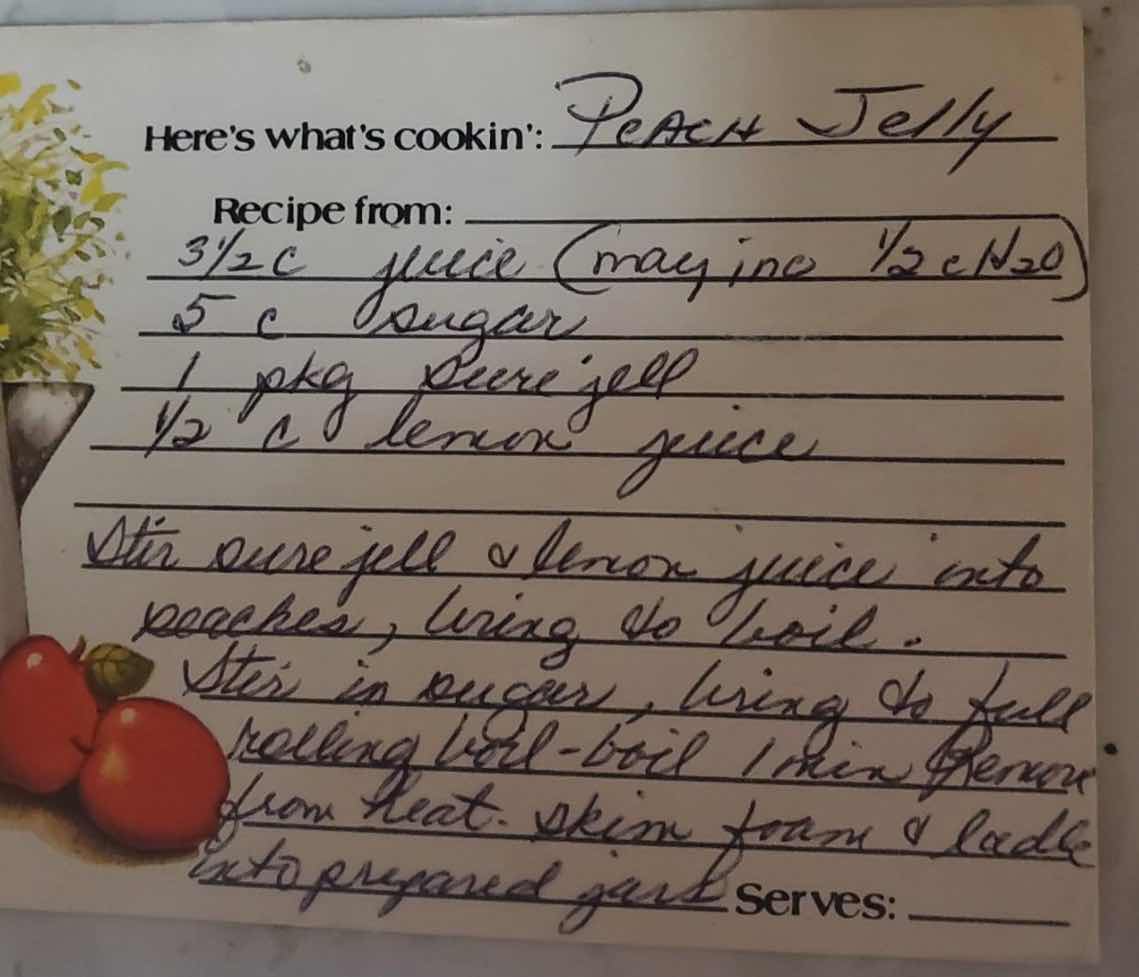 Here's what's cookin': Peach Jelly
Recipe from:
3 1/2 c juice (may inc 1/2 c H2O)
5 c sugar
1 pkg Sure jell
1/2 c lemon juice
Stir sure jell & lemon juice into
peaches, bring to boil.
Stir in sugar, bring to full
rolling boil-boil 1 min Remove
from heat. skim foam & ladle
into prepared jars Serves: